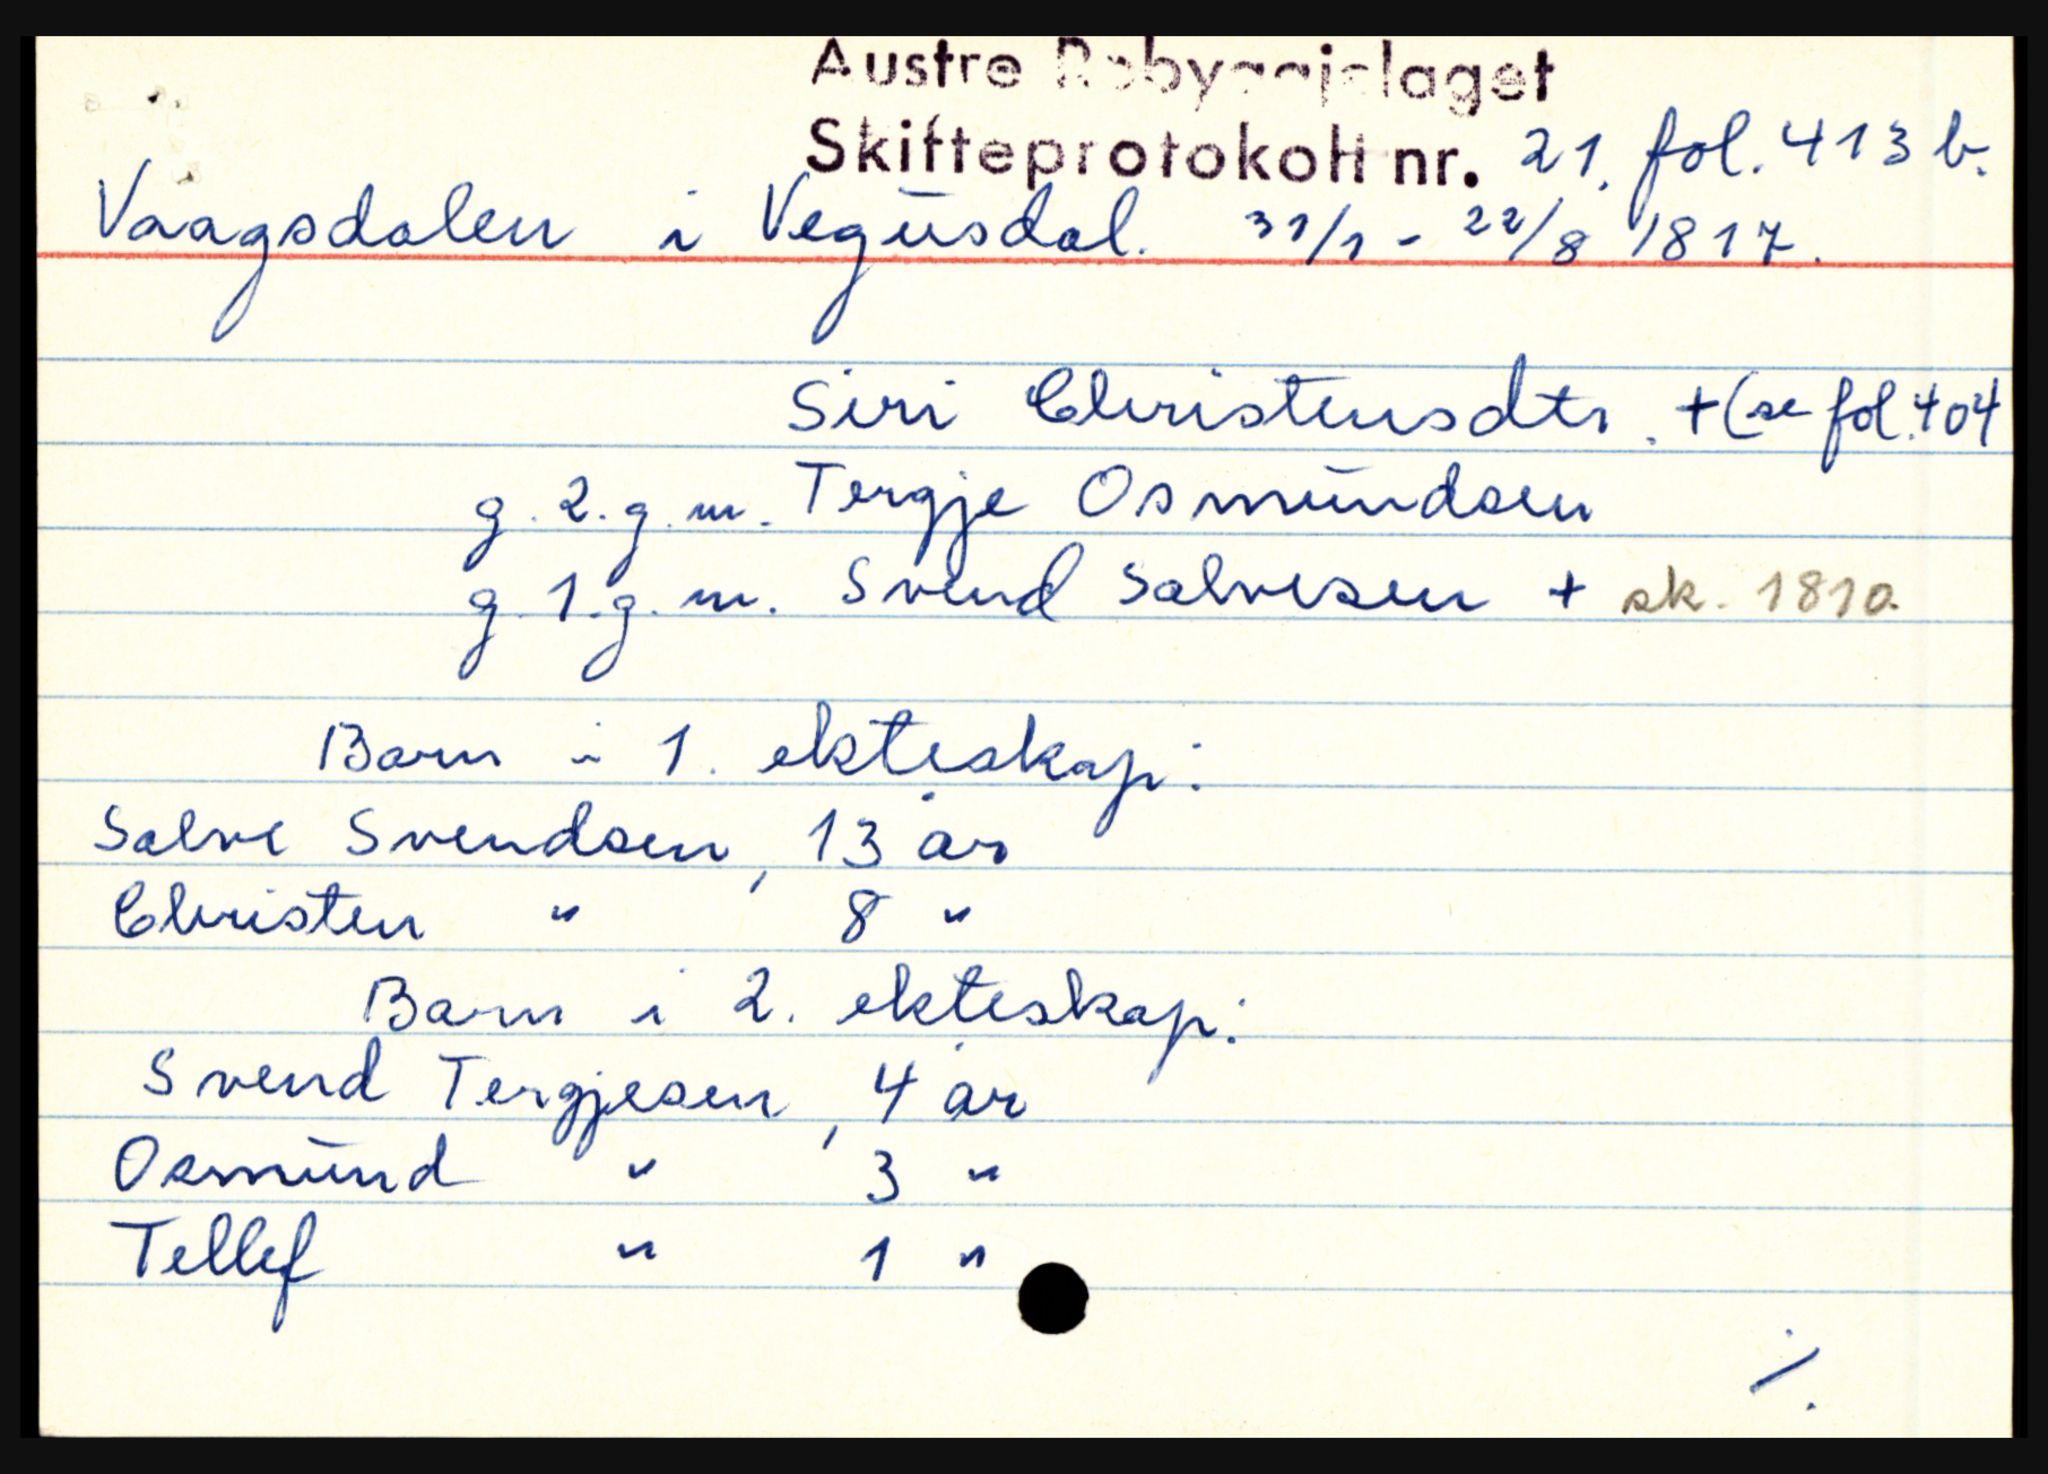 Austre Robyggjelaget
Skifteprotokoll nr. 21. fol. 413 b.
Vaagsdalen i Vegusdal. 31/1 - 22/8 1817.
Siri Christensdtr. +(se fol. 404
g. 2. g. m. Tergje Osmundsen
g. 1. g. m. Svend Salvesen + sk. 1810
Barn i 1. ekteskap:
Salve Svendsen, 13 år
Christen " 8 "
Barn i 2. ekteskap:
Svend Tergjesen, 4 år
Osmund " 3 "
Tellef " 1 "
·/.